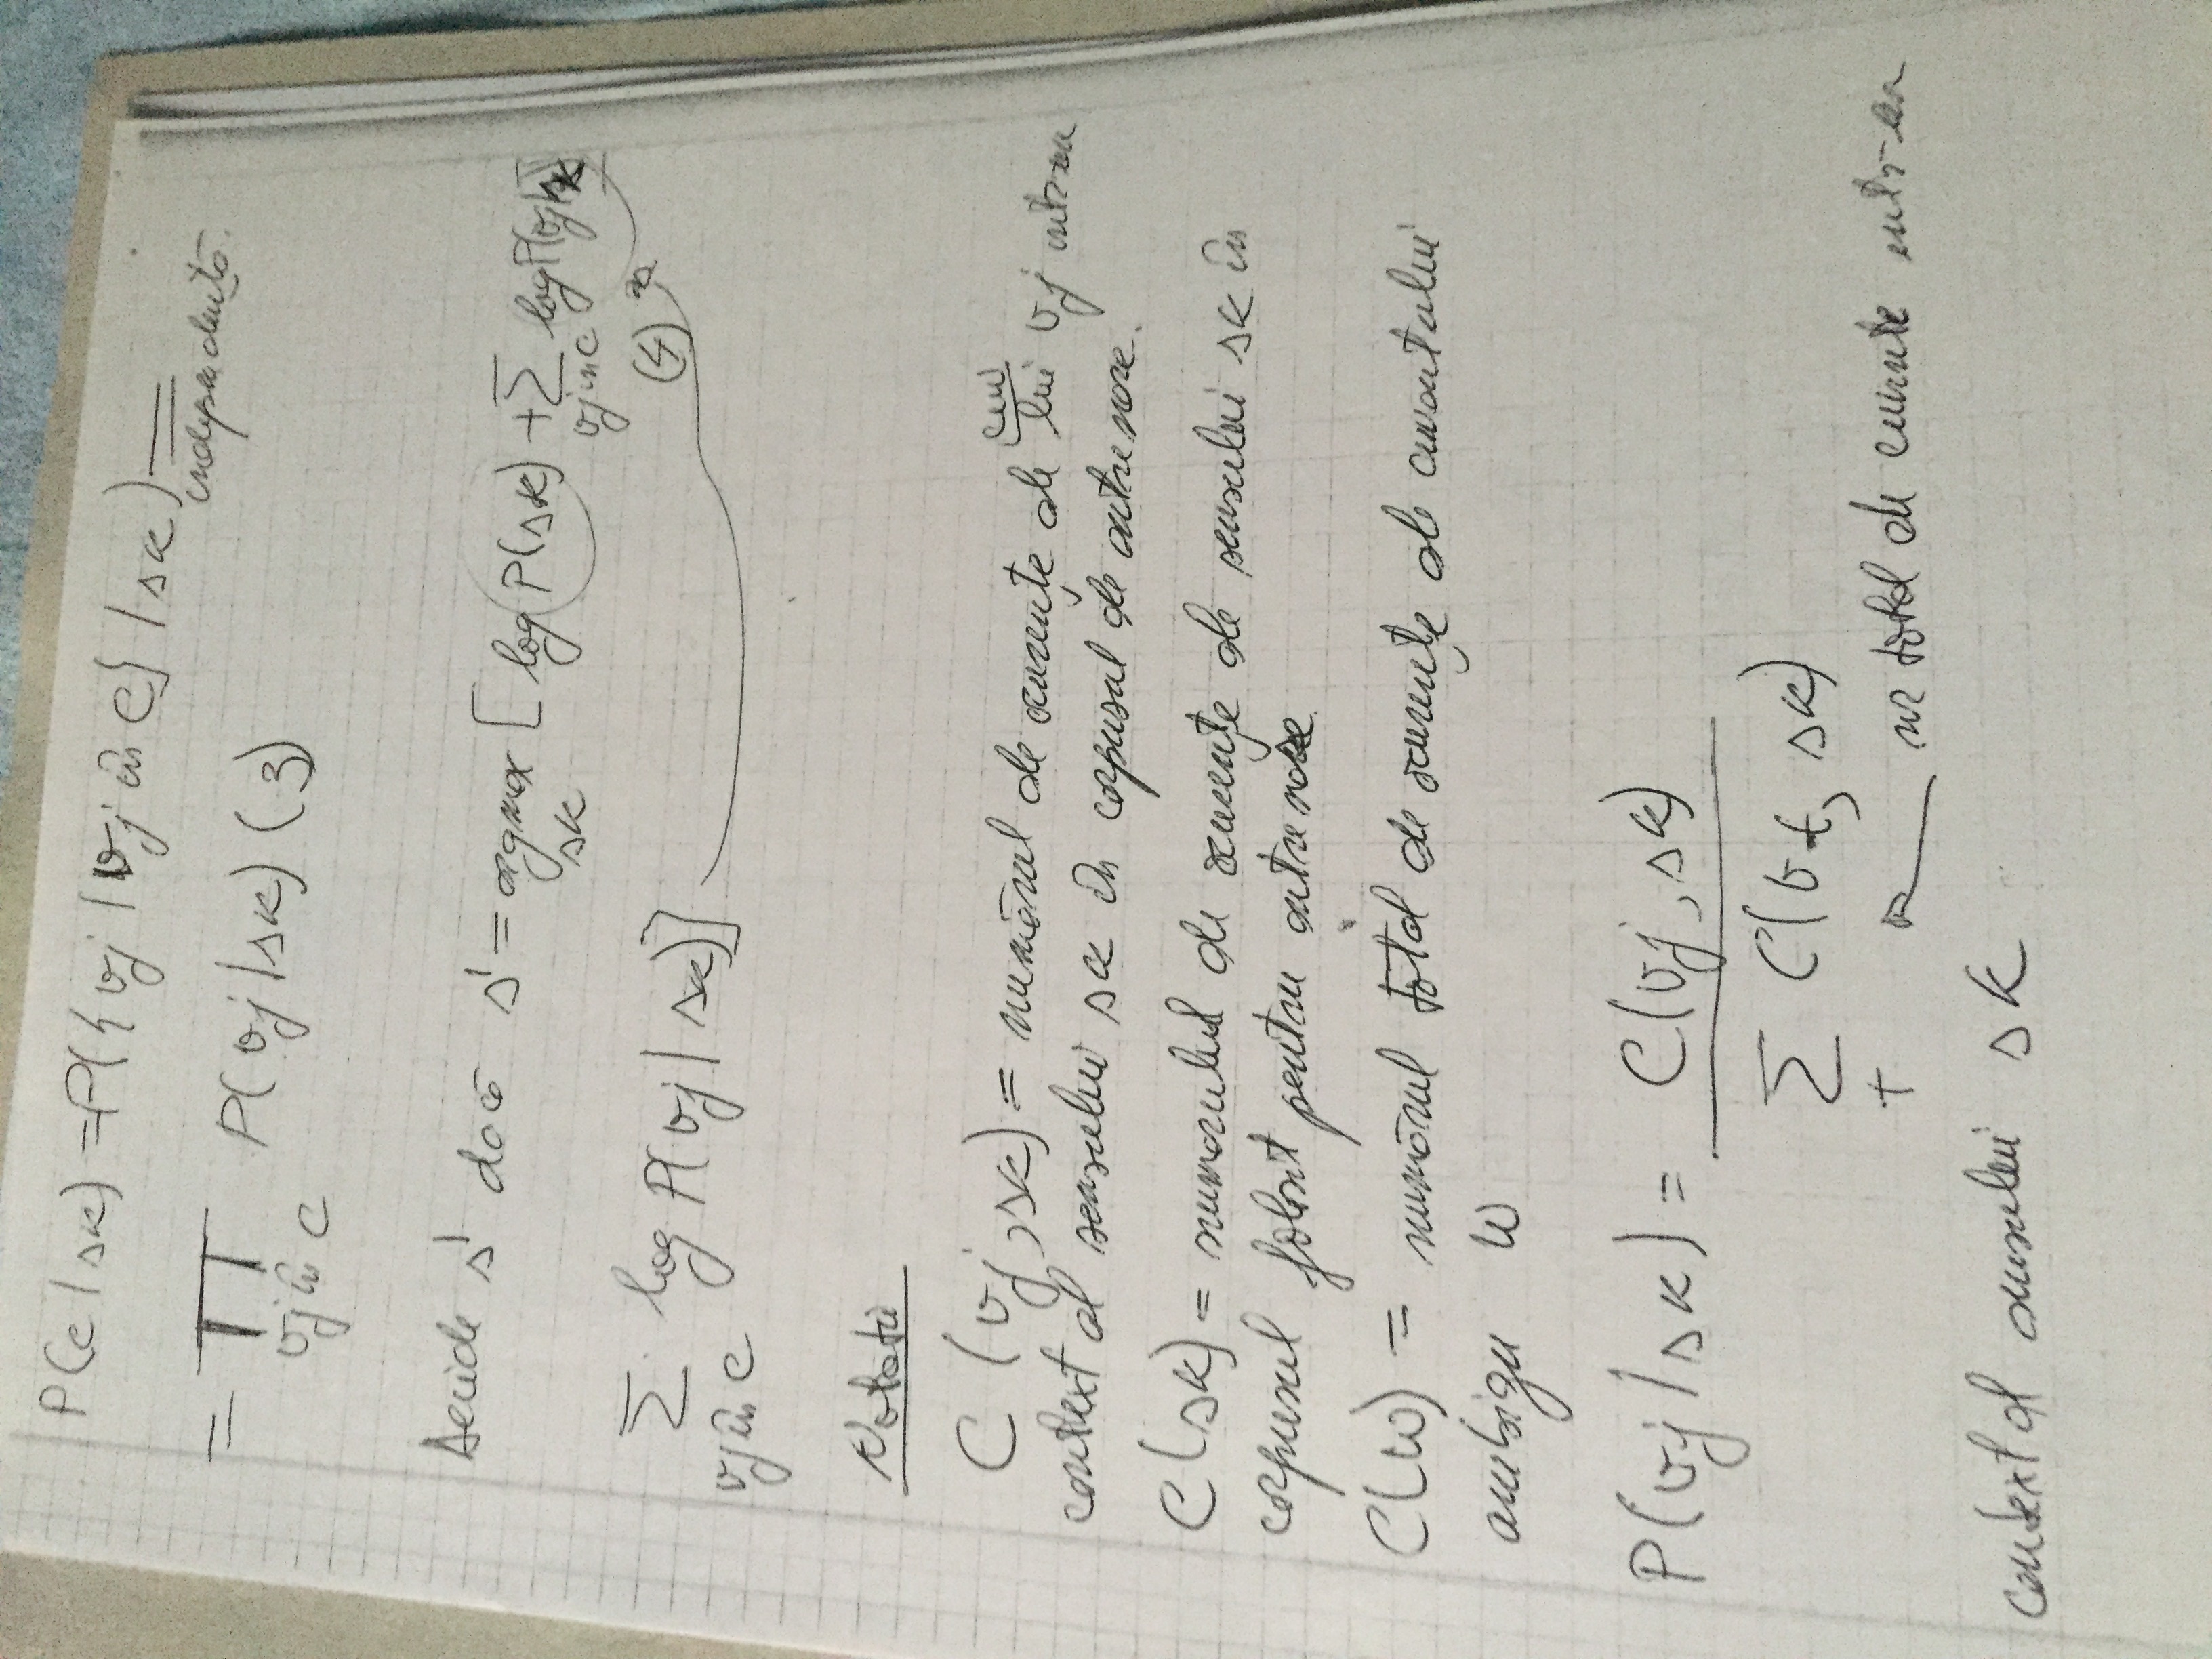 P(c / sk) = P({ vj / vj în C} / sk) =
independență.
= ∏ P(vj / sk) (3)
vj în C
Decide s' dacă s' = argmax [ log P(sk) + Σ log P(vj/sk
sk vj în C
(4)
Σ log P(vj / sk)]
vj în C
Notatii
cuv
C (vj, sk) = numărul de ocurențe ale lui vj intr-un
context al sensului sk în corpusul de antrenare.
C(sk) = numarului de ocurențe ale sensului sk în
corpusul folosit pentru antrenare.
C(w) = numărul total de ocurențe ale cuvantului
ambigu w
P(vj / sk) = C(vj, sk)
Σ C(vt, sk)
t nr total de cuvinte intr-un
context al sensului sk